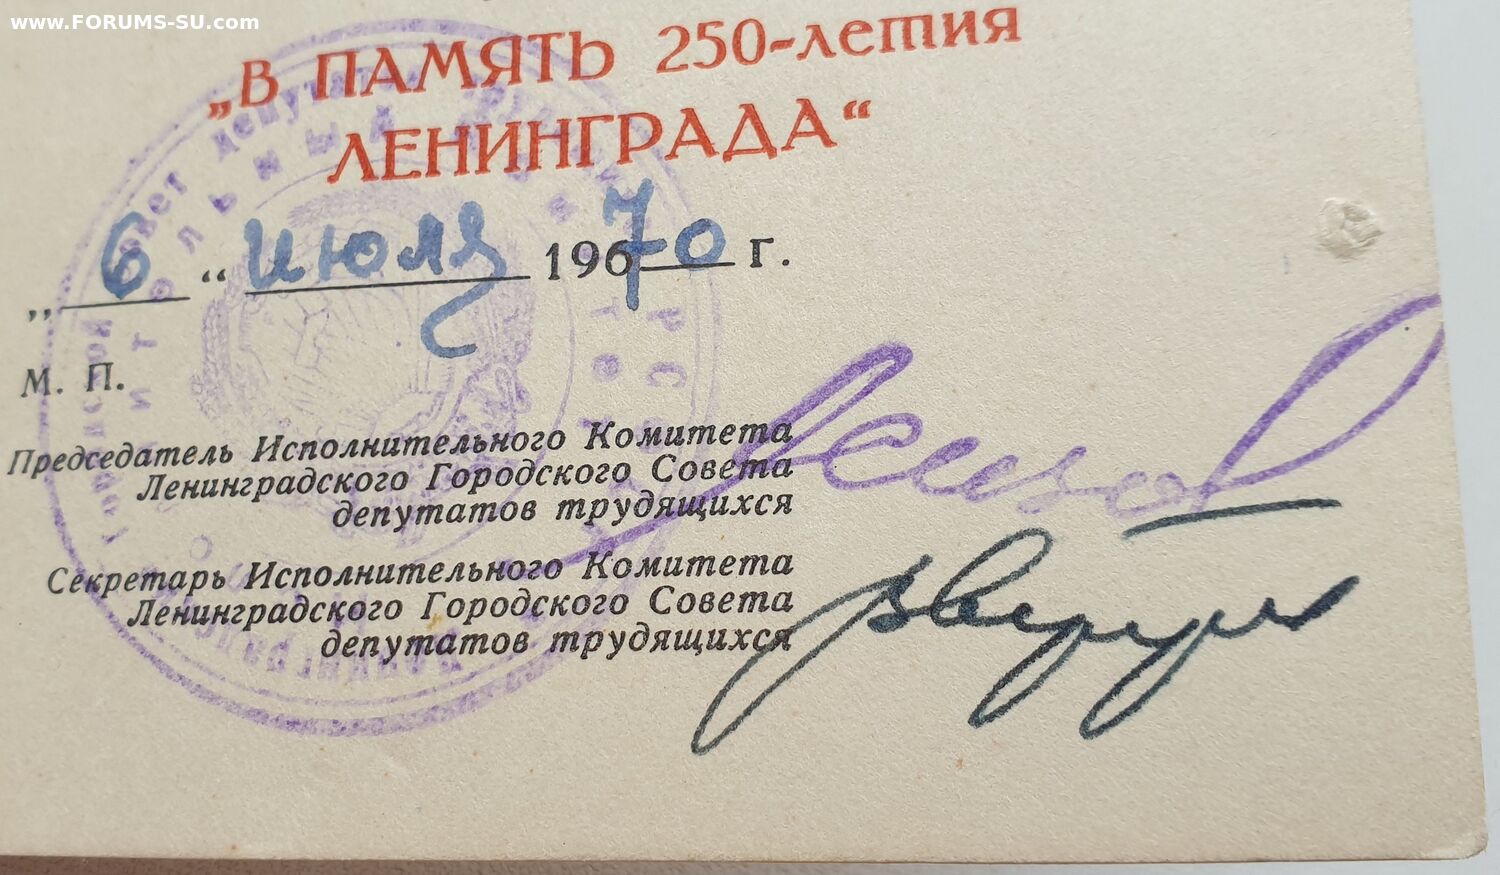 www.FORUMS-SU.com
„В ПАМЯТЬ 250-летия
ЛЕНИНГРАДА“
„ 6 “ июля 19670 г.
М. П.
Председатель Исполнительного Комитета
Ленинградского Городского Совета
депутатов трудящихся
Секретарь Исполнительного Комитета
Ленинградского Городского Совета
депутатов трудящихся